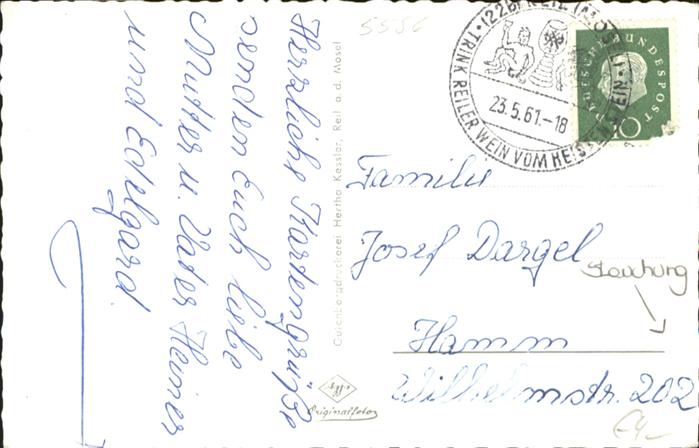 Herzliche Kartengrüße
senden Euch liebe
Mutter u. Vater Heiner
und Edelgard.
Gutenbergdruckerei Hertha Kessler, Reil a.d. Mosel
5556
(22b) REIL (MOSEL)
TRINK REILER WEIN VOM HEISSEN STEIN
23.5.61.-18
DEUTSCHE BUNDESPOST
10
Familie
Josef Dargel
Hamm
Wilhelmstr. 202
Originalfoto